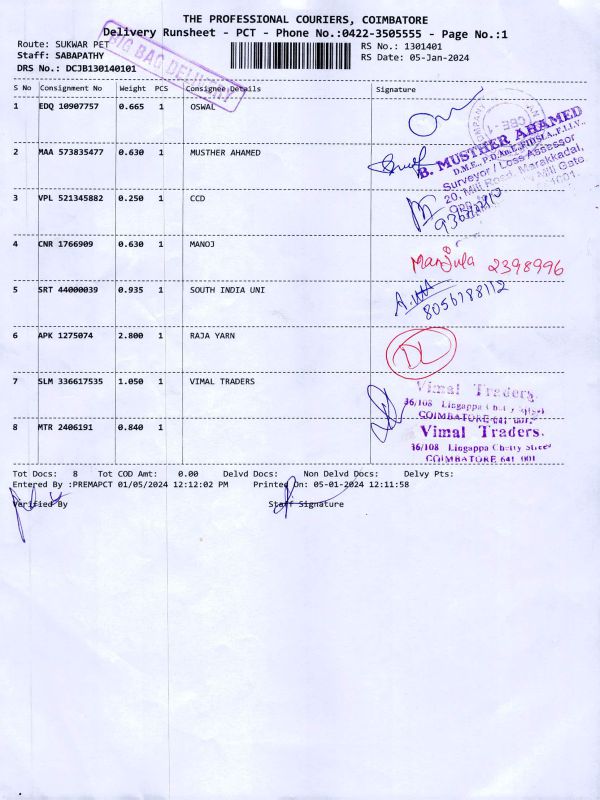 THE PROFESSIONAL COURIERS, COIMBATORE
Delivery Runsheet - PCT - Phone No.:0422-3505555 - Page No.:1
Route: SUKWAR PET
RS No.: 1301401
Staff: SABAPATHY
RS Date: 05-Jan-2024
DRS No.: DCJB130140101
BIG BAG DELIVERY
S No Consignment No Weight PCS Consignee Details Signature
1 EDQ 10907757 0.665 1 OSWAL
2 MAA 573835477 0.630 1 MUSTHER AHAMED
B. MUSTHER AHAMED
Surveyor / Loss Assessor
20, Mill Road, Marakkadai,
3 VPL 521345882 0.250 1 CCD
4 CNR 1766909 0.630 1 MANOJ
Manjula 2398996
5 SRT 44000039 0.935 1 SOUTH INDIA UNI
8056788112
6 APK 1275074 2.800 1 RAJA YARN
7 SLM 336617535 1.050 1 VIMAL TRADERS
Vimal Traders.
36/108 Lingappa Chetty Street
COIMBATORE 641 001.
8 MTR 2406191 0.840 1
Vimal Traders.
36/108 Lingappa Chetty Street
COIMBATORE 641 001
Tot Docs: 8 Tot COD Amt: 0.00 Delvd Docs: Non Delvd Docs: Delvy Pts:
Entered By :PREMAPCT 01/05/2024 12:12:02 PM Printed On: 05-01-2024 12:11:58
Verified By Staff Signature